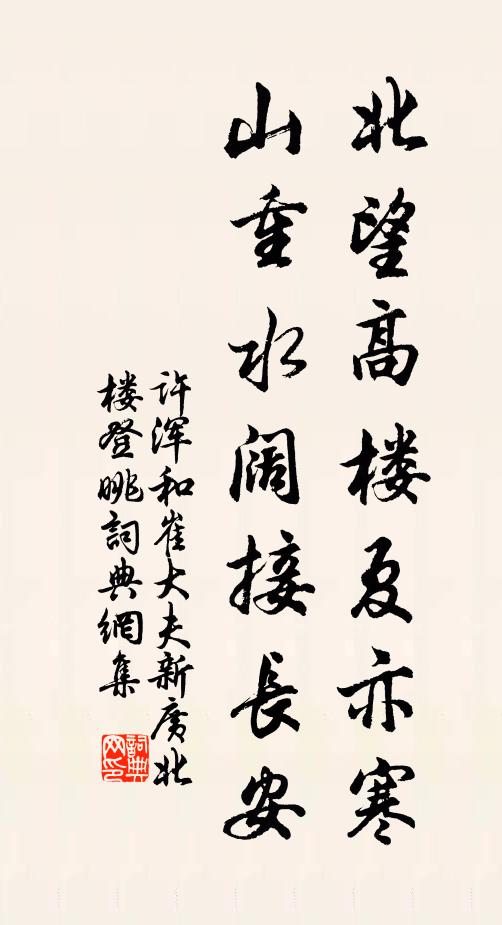 北望高楼夏亦寒
山重水阔接長安
许浑和崔大夫新广北
楼登眺詞典網集
詞典
网印